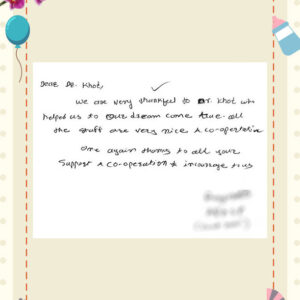 Dear Dr. Khot,
we are very thankful to Dr. Khot who
helped us to our dream come true. all
the staff are very nice & co-operative
one again thanks to all your
Support & co-operation & incourage to us